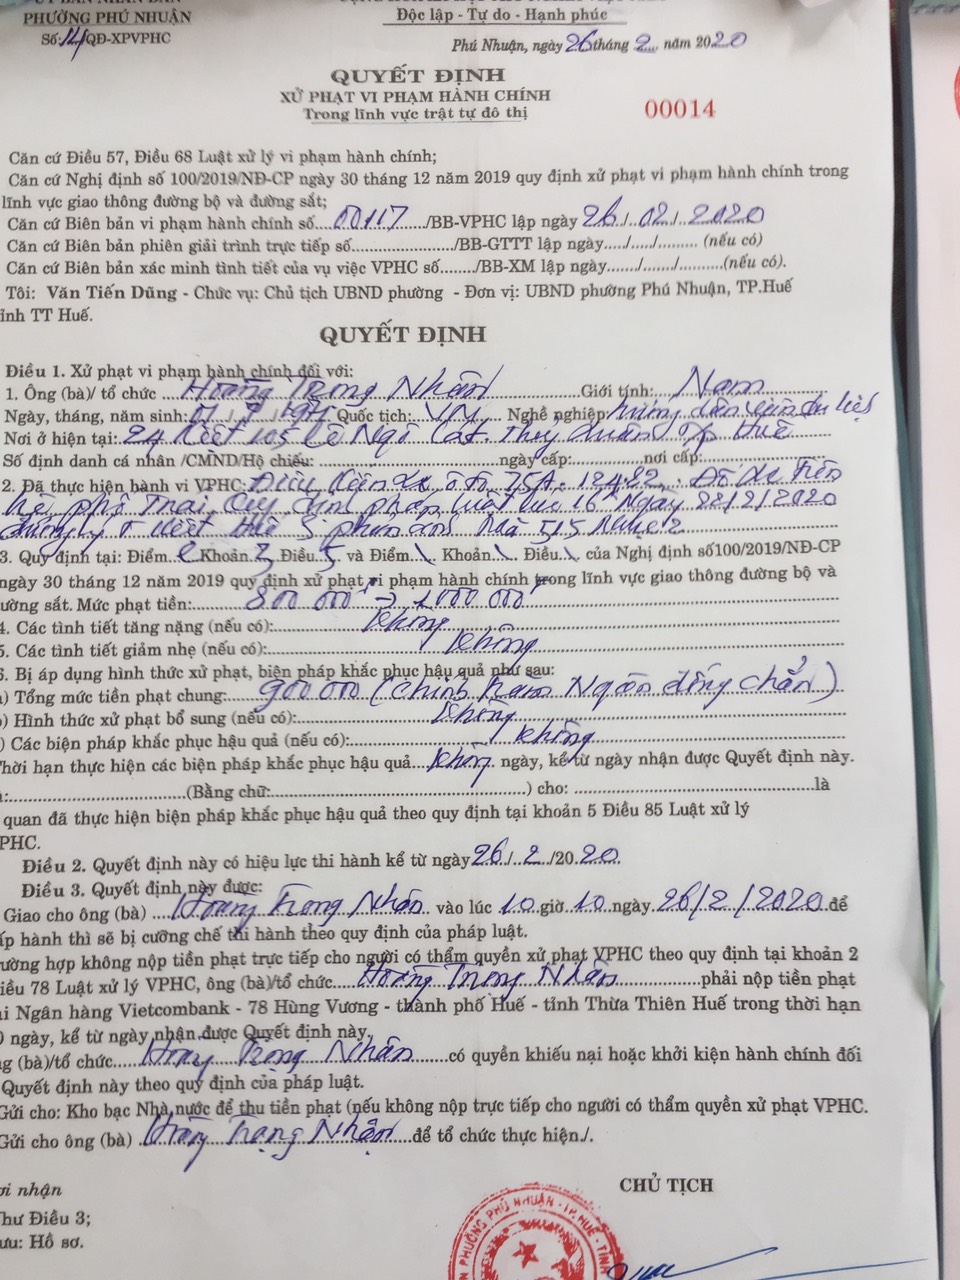 PHƯỜNG PHÚ NHUẬN
Độc lập - Tự do - Hạnh phúc
Số: 14/QĐ-XPVPHC
Phú Nhuận, ngày 26 tháng 2 năm 2020
QUYẾT ĐỊNH
XỬ PHẠT VI PHẠM HÀNH CHÍNH
Trong lĩnh vực trật tự đô thị
00014
Căn cứ Điều 57, Điều 68 Luật xử lý vi phạm hành chính;
Căn cứ Nghị định số 100/2019/NĐ-CP ngày 30 tháng 12 năm 2019 quy định xử phạt vi phạm hành chính trong
lĩnh vực giao thông đường bộ và đường sắt;
Căn cứ Biên bản vi phạm hành chính số....00117.../BB-VPHC lập ngày 26./.02./.2020
Căn cứ Biên bản phiên giải trình trực tiếp số................/BB-GTTT lập ngày...../...../......... (nếu có)
Căn cứ Biên bản xác minh tình tiết của vụ việc VPHC số......../BB-XM lập ngày......./......./..........(nếu có).
Tôi: Văn Tiến Dũng - Chức vụ: Chủ tịch UBND phường - Đơn vị: UBND phường Phú Nhuận, TP.Huế
ỉnh TT Huế.
QUYẾT ĐỊNH
Điều 1. Xử phạt vi phạm hành chính đối với:
1. Ông (bà)/ tổ chức ...Hoàng Trọng Nhân.......Giới tính:...Nam.........
Ngày, tháng, năm sinh: Quốc tịch:..VN.... Nghề nghiệp hướng dẫn viên du lịch
Nơi ở hiện tại: 24 Kiệt 105 Lê Ngô Cát. Thủy Xuân Tp Huế
Số định danh cá nhân /CMND/Hộ chiếu: ..............................ngày cấp:.............nơi cấp:...............
2. Đã thực hiện hành vi VPHC: Điều khiển xe ô tô 75A. 12482. Đỗ xe trên
hè phố Trái Quy định pháp luật lúc 16 Ngày 22/2/2020
đường lý 5 phản ánh Mã 515
3. Quy định tại: Điểm e Khoản 3 Điều 5 và Điểm \. Khoản \. Điều.\. của Nghị định số100/2019/NĐ-CP
ngày 30 tháng 12 năm 2019 quy định xử phạt vi phạm hành chính trong lĩnh vực giao thông đường bộ và
ường sắt. Mức phạt tiền:........800 000đ → 1000 000đ
4. Các tình tiết tăng nặng (nếu có):............không
5. Các tình tiết giảm nhẹ (nếu có):............không
6. Bị áp dụng hình thức xử phạt, biện pháp khắc phục hậu quả như sau:
) Tổng mức tiền phạt chung:....900 000 (Chính trăm Ngàn đồng chẵn)
) Hình thức xử phạt bổ sung (nếu có):............không
) Các biện pháp khắc phục hậu quả (nếu có):............không
hời hạn thực hiện các biện pháp khắc phục hậu quả...không.. ngày, kể từ ngày nhận được Quyết định này.
:..............................(Bằng chữ:...........................................) cho: .........................................là
quan đã thực hiện biện pháp khắc phục hậu quả theo quy định tại khoản 5 Điều 85 Luật xử lý
PHC.
Điều 2. Quyết định này có hiệu lực thi hành kể từ ngày 26./..2../20.20.
Điều 3. Quyết định này được:
Giao cho ông (bà) ...Hoàng Trọng Nhân.. vào lúc 10.giờ..10..ngày..26/2/2020.để
ấp hành thì sẽ bị cưỡng chế thi hành theo quy định của pháp luật.
rường hợp không nộp tiền phạt trực tiếp cho người có thẩm quyền xử phạt VPHC theo quy định tại khoản 2
iều 78 Luật xử lý VPHC, ông (bà)/tổ chức.....Hoàng Trọng Nhân............phải nộp tiền phạt
i Ngân hàng Vietcombank - 78 Hùng Vương - thành phố Huế - tỉnh Thừa Thiên Huế trong thời hạn
0 ngày, kể từ ngày nhận được Quyết định này.
g (bà)/tổ chức.....Hoàng Trọng Nhân......có quyền khiếu nại hoặc khởi kiện hành chính đối
Quyết định này theo quy định của pháp luật.
Gửi cho: Kho bạc Nhà nước để thu tiền phạt (nếu không nộp trực tiếp cho người có thẩm quyền xử phạt VPHC.
Gửi cho ông (bà) Hoàng Trọng Nhân....để tổ chức thực hiện./.
ơi nhận
CHỦ TỊCH
hư Điều 3;
ưu: Hồ sơ.
PHƯỜNG PHÚ NHUẬN - TP. HUẾ - TỈNH